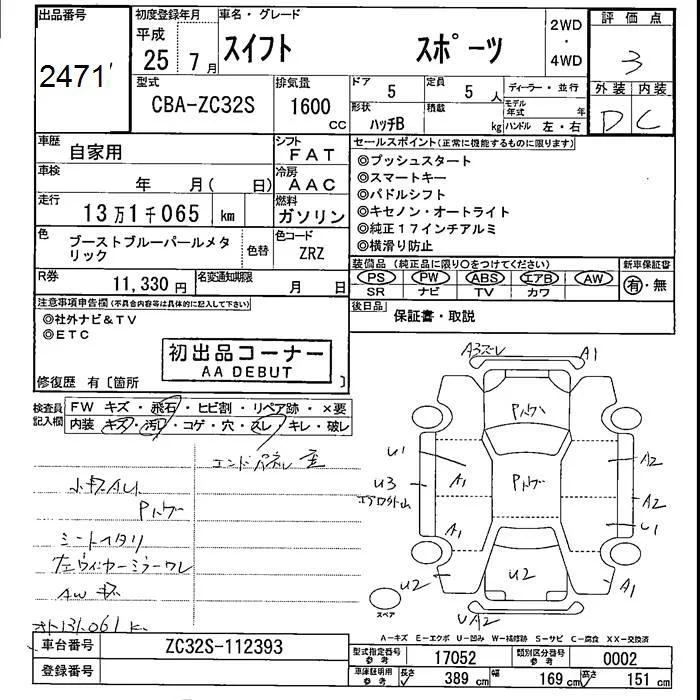 出品番号
2471
初度登録年月
平成
25 7月
車名・グレード
スイフト スポーツ
2WD
・
4WD
評価点
3
型式
CBA-ZC32S
排気量
1600
CC
ドア
5
定員
5 人
ディーラー・並行
外装 内装
D C
形状
ハッチB
積載
kg
モデル
年式 年
ハンドル 左・右
車歴
自家用
シフト
FAT
車検
年 月( 日)
冷房
AAC
走行
13万1千065 km
燃料
ガソリン
色
ブーストブルーパールメタ
リック
色替
色コード
ZRZ
R券
11,330円
名変通知期限
月 日
セールスポイント(正常に機能するものに限ります)
◎プッシュスタート
◎スマートキー
◎パドルシフト
◎キセノン・オートライト
◎純正17インチアルミ
◎横滑り防止
装備品(純正品に限り○をつけてください)
新車保証書
PS PW ABS エアB AW
有・無
SR ナビ TV カワ
後日品
保証書・取説
注意事項申告欄(不具合内容等は具体的に記入して下さい)
◎社外ナビ&TV
◎ETC
初出品コーナー
AA DEBUT
修復歴 有〔箇所 〕
検査員
記入欄
FW キズ・飛石・ヒビ割・リペア跡・×要
内装 キズ・汚レ・コゲ・穴・スレ・キレ・破レ
小キズAU
Pトゲ
シートヘタリ
左ウィンカーミラーワレ
AWキズ
オト131,061K
A3ズレ
A1
Pトゲ
U1
A1
U3
Pトゲ
A2
A2
U1
A1
U2
U2
A1
UA2
スペア
A-キズ E-エクボ U-凹み W-補修跡 S-サビ C-腐食 XX-交換済
車台番号
ZC32S-112393
登録番号
型式指定番号
参考
17052
類別区分番号
参考
0002
車庫証明用
参考
長さ 389 cm 幅 169 cm 高さ 151 cm